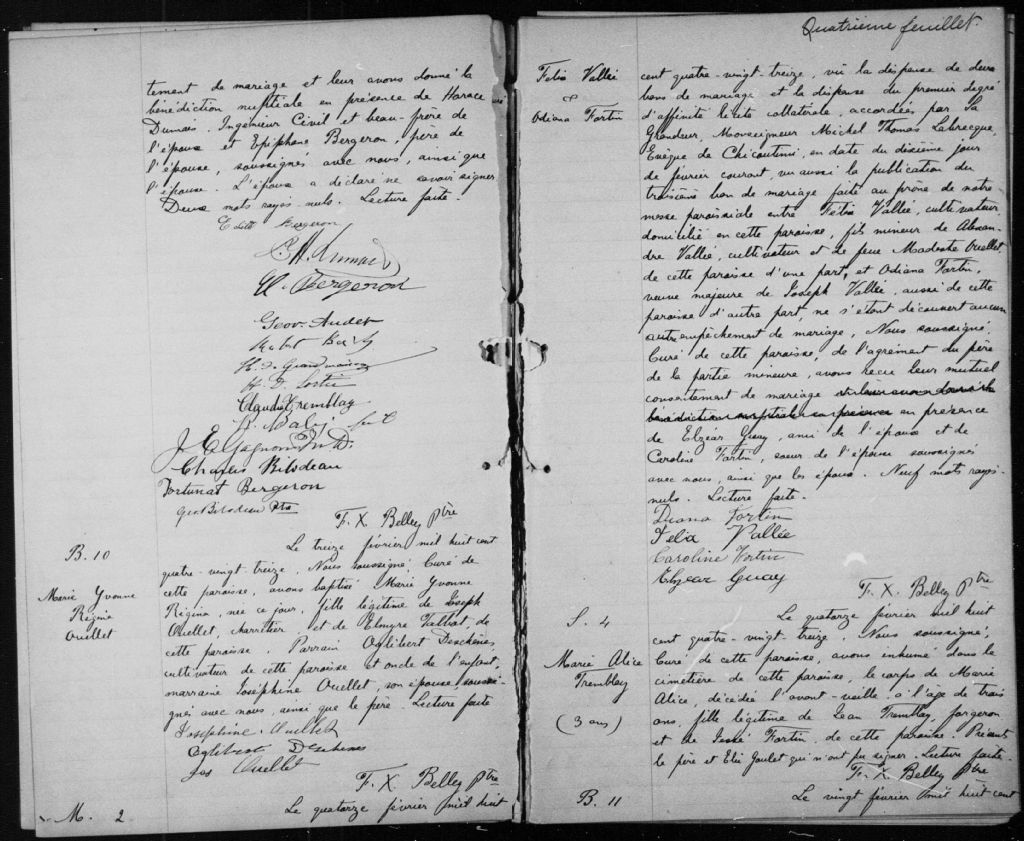 tement de mariage et leur avons donné la
bénédiction nuptiale en présence de Horace
Dumais, Ingénieur Civil et beau-frère de
l'époux et Epiphane Bergeron, père de
l'épouse, soussignés avec nous, ainsi que
l'épouse. L'époux a déclaré ne savoir signer.
Deux mots rayés nuls. Lecture faite.
Edith Bergeron
H. Dumais
E. Bergeron
Geo. Audet
H. Fortin
Claudia Tremblay
J. E. Gagnon M.D.
Charles Bilodeau
Fortunat Bergeron
Geo Bilodeau Ptre
F. X. Belley Ptre
B. 10
Marie Yvonne
Régina
Ouellet
Le treize février mil huit cent
quatre-vingt-treize, Nous soussigné, Curé de
cette paroisse, avons baptisé Marie Yvonne
Régina, née ce jour, fille légitime de Joseph
Ouellet, charretier et de Elmyre Talbot, de
cette paroisse. Parrain Oglibert Deschènes,
cultivateur de cette paroisse et oncle de l'enfant,
marraine Joséphine Ouellet, son épouse, soussi-
gnés avec nous, ainsi que le père. Lecture faite
Josephine Ouellet
Oglibert Deschenes
Jos Ouellet
F. X. Belley Ptre
M. 2
Le quatorze février mil huit
Quatrième feuillet.
Felix Vallée
&
Odiana Fortin
cent quatre-vingt-treize, vu la dispense de deux
bans de mariage et la dispense du premier degré
d'affinité licite collatérale, accordées par Sa
Grandeur, Monseigneur Michel Thomas Labrecque,
Evêque de Chicoutimi, en date du dixième jour
de février courant, vu aussi la publication du
troisième ban de mariage faite au prône de notre
messe paroissiale entre Félix Vallée, cultivateur,
domicilié en cette paroisse, fils mineur de Alexan-
dre Vallée, cultivateur et de feue Modeste Ouellet,
de cette paroisse d'une part, et Odiana Fortin,
veuve majeure de Joseph Vallée, aussi de cette
paroisse d'autre part, ne s'étant découvert aucun
autre empêchement de mariage, Nous soussigné,
Curé de cette paroisse, de l'agrément du père
de la partie mineure, avons reçu leur mutuel
consentement de mariage et leur avons donné la
bénédiction nuptiale en présence en présence
de Elzéar Guay, ami de l'époux et de
Caroline Fortin, soeur de l'épouse soussignés
avec nous, ainsi que les époux. Neuf mots rayés
nuls. Lecture faite.
Diana Fortin
Felix Vallée
Caroline Fortin
Elzear Guay
F. X. Belley Ptre
S. 4
Marie Alice
Tremblay
(3 ans)
Le quatorze février mil huit
cent quatre-vingt-treize, Nous soussigné,
Curé de cette paroisse, avons inhumé dans le
cimetière de cette paroisse, le corps de Marie
Alice, décédée l'avant-veille à l'âge de trois
ans, fille légitime de Jean Tremblay, forgeron
et de Fortin de cette paroisse. Présents
le père et Elie Goulet qui n'ont pu signer. Lecture faite.
F. X. Belley Ptre
B. 11
Le vingt février mil huit cent